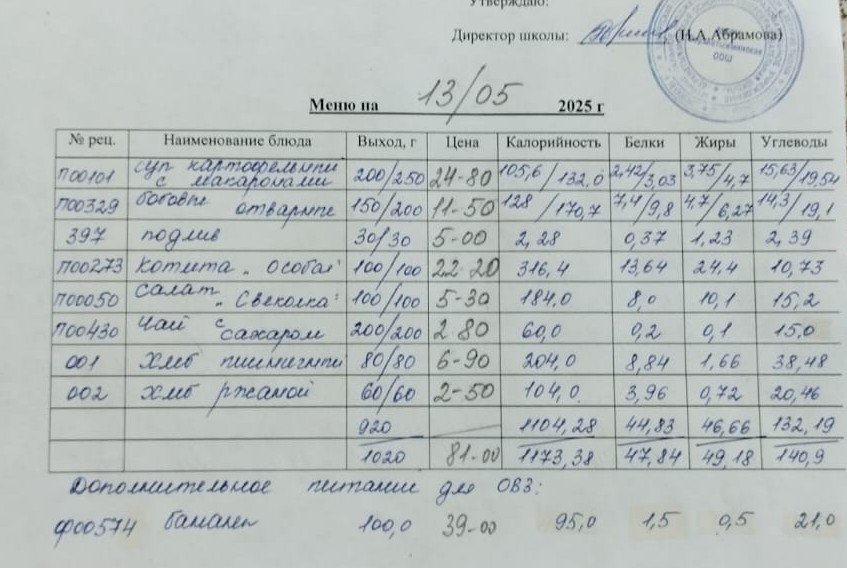 Утверждаю:
Директор школы: (Н.А.Абрамова)
Меню на 13/05 2025 г
№ рец. Наименование блюда Выход, г Цена Калорийность Белки Жиры Углеводы
П00101 суп картофельный с макаронами 200/250 24-80 105,6/132,0 2,42/3,03 3,75/4,7 15,63/19,54
П00329 бобовые отварные 150/200 11-50 128/170,7 7,4/9,8 4,7/6,27 14,3/19,1
397 подлив 30/30 5-00 2,28 0,37 1,23 2,39
П00273 котлета „Особая" 100/100 22-20 316,4 13,64 24,4 10,73
П00050 салат „Свеколка" 100/100 5-30 184,0 8,0 10,1 15,2
П00430 чай с сахаром 200/200 2-80 60,0 0,2 0,1 15,0
001 хлеб пшеничный 80/80 6-90 204,0 8,84 1,66 38,48
002 хлеб ржаной 60/60 2-50 104,0 3,96 0,72 20,46
920 1104,28 44,83 46,66 132,19
1020 81-00 1173,38 47,84 49,18 140,9
Дополнительное питание для ОВЗ:
ф00574 банален 100,0 39-00 95,0 1,5 0,5 21,0